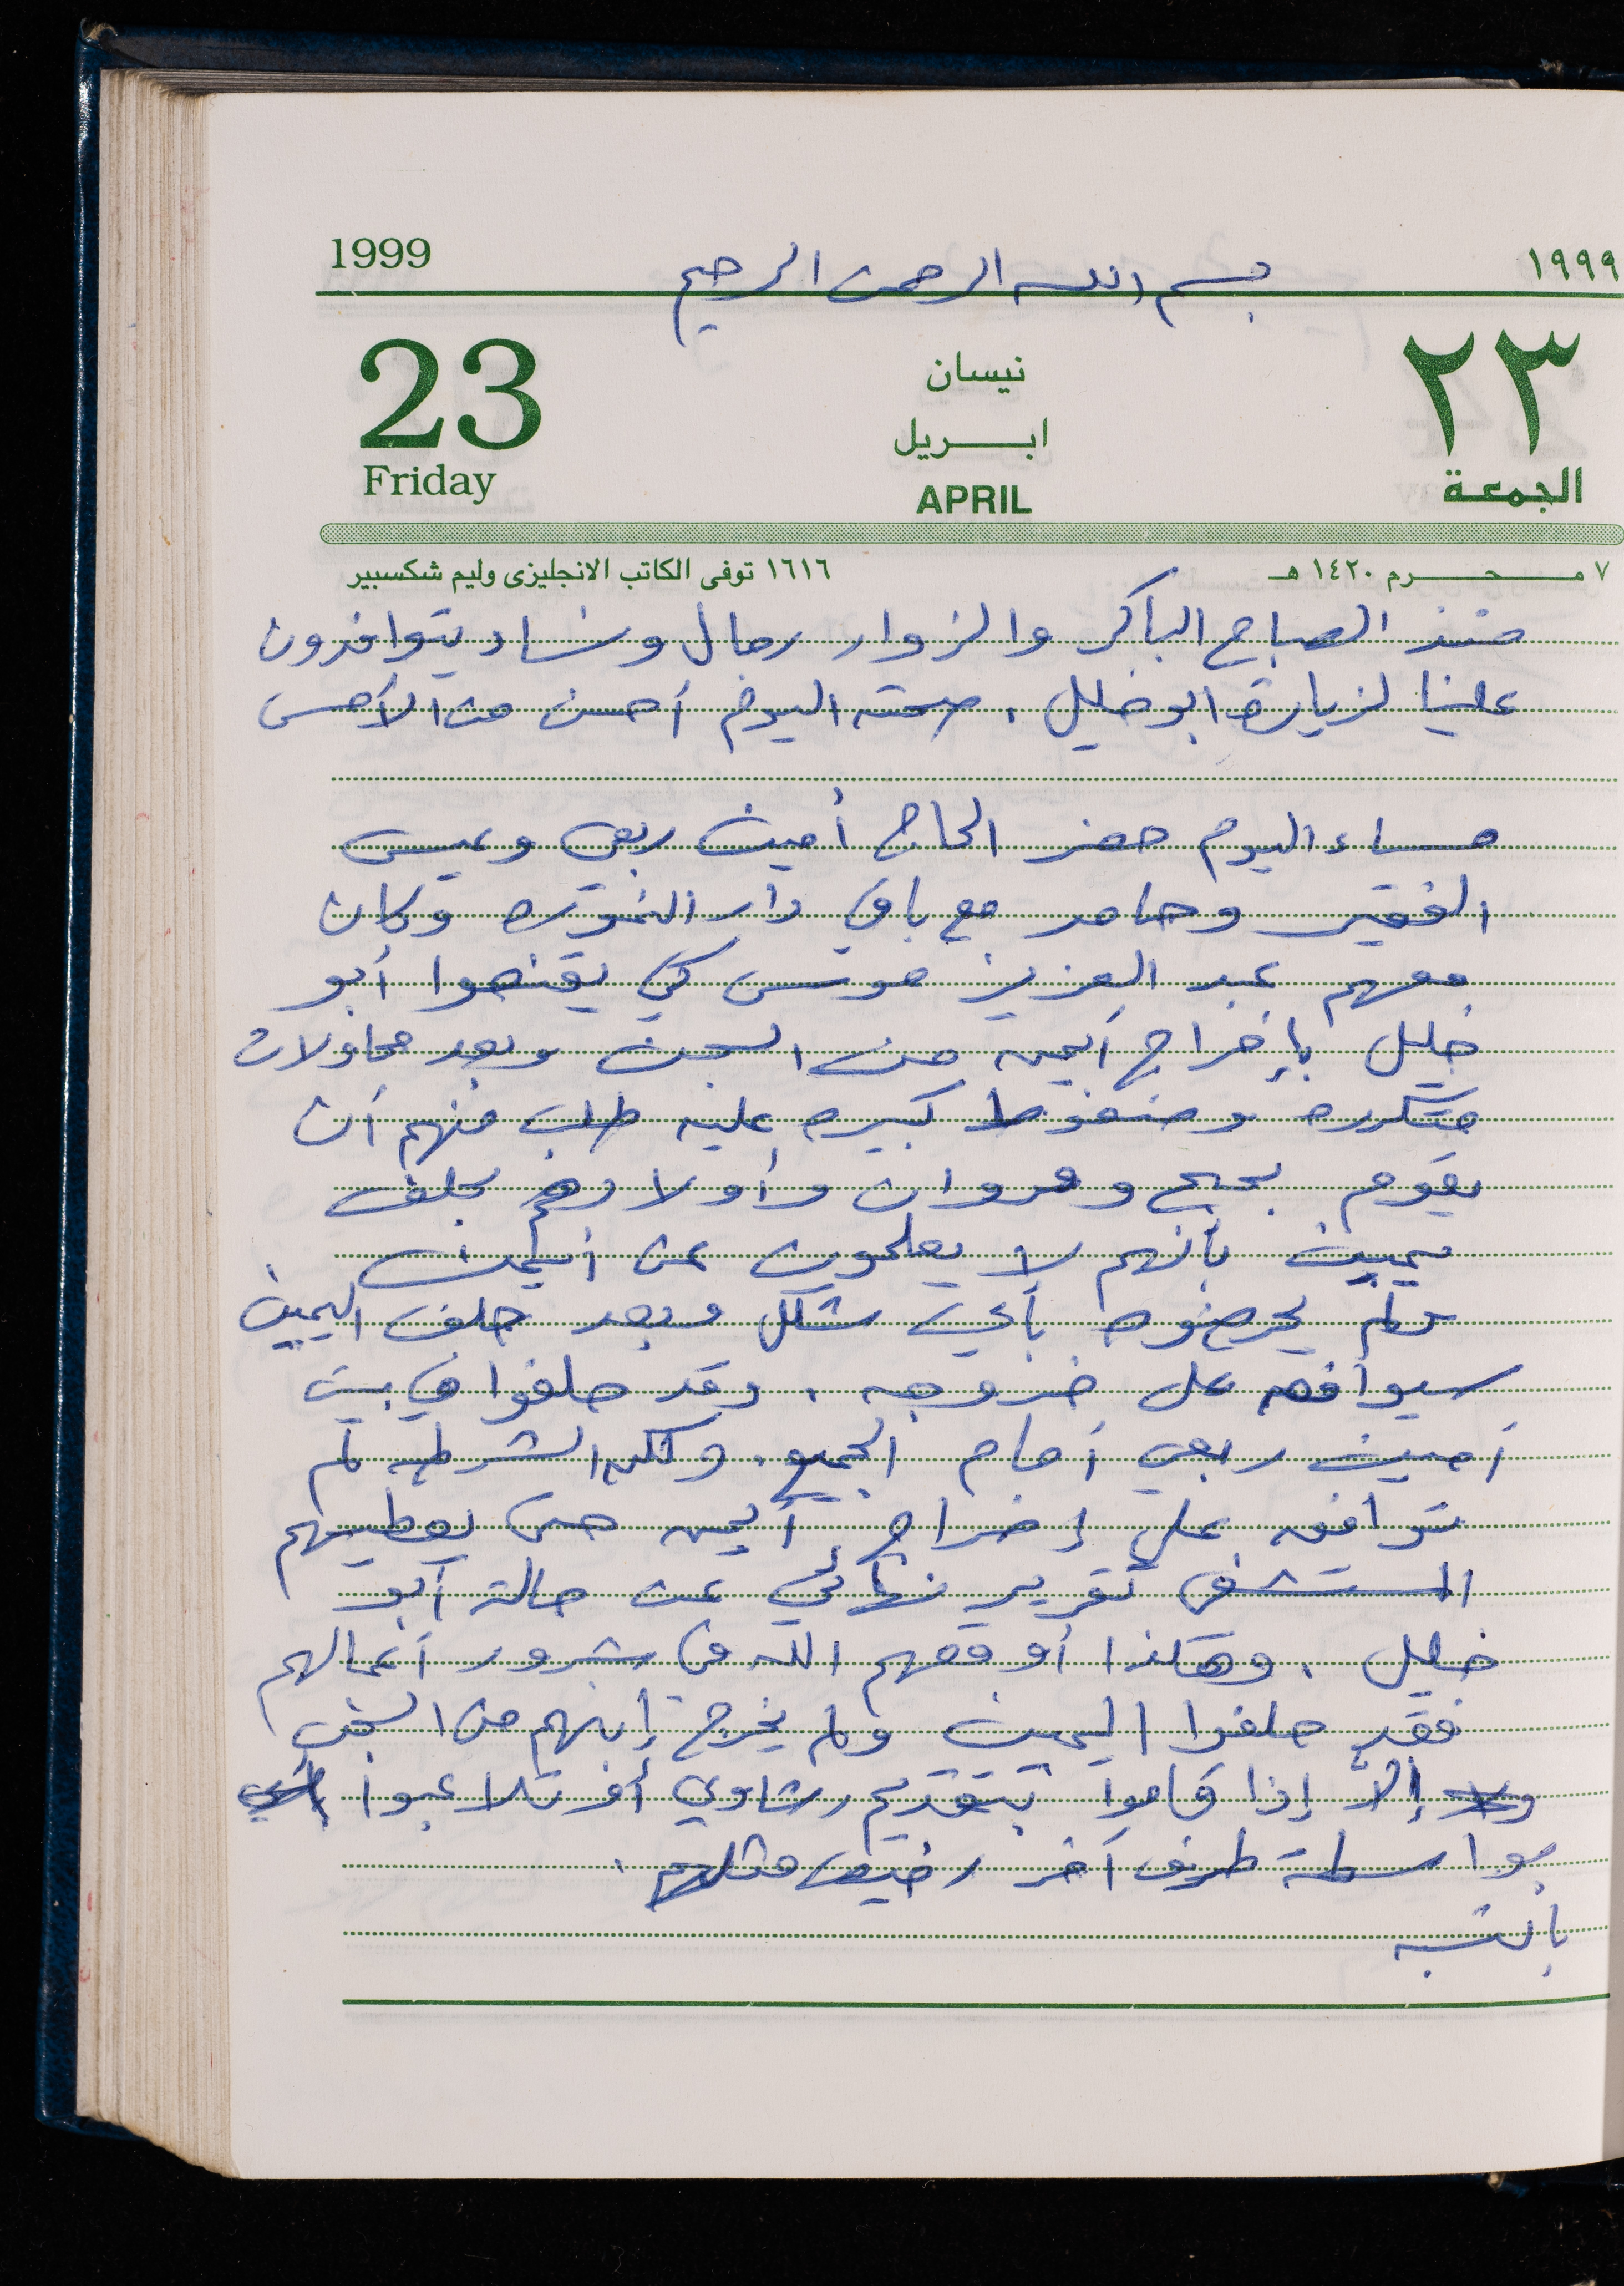 1999 بسم الله الرحمن الرحيم ١٩٩٩
23 نيسان ٢٣
ابريل
Friday APRIL الجمعة
٧ محرم ١٤٢٠ هـ ١٦١٦ توفى الكاتب الانجليزى وليم شكسبير
منذ الصباح الباكر والزوار رجال ونساء يتوافدون
علينا لزيارة ابو خليل . صحته اليوم أحسن من الأمس
مساء اليوم حضر الحاج أمين ربعي وعيسى
الفقير وحامد مع باقي دار النموره وكان
معهم عبد العزيز موسى كي يقنعوا أبو
خليل بإخراج أيمن من السجن وبعد محاولات
متكرره وضغوط كبيره عليه طلب منهم أن
يقوم بحبح ومروان وأولادهم بحلف
يمين بأنهم لا يعلمون عن أيمن
ولم يحرضوه بأي شكل وبعد حلف اليمين
سيوافق على خروجه . وقد حلفوا في بيت
أمين ربعي أمام الجميع . ولكن الشرطه لم
توافق على إخراج أيمن حتى يعطيهم
المستشفى تقرير نهائي عن حالة أبو
خليل . وهكذا أوقعهم الله في شرور أعمالهم
فقد حلفوا اليمين ولم يخرج إبنهم من السجن
إلاّ إذا قاموا بتقديم رشاوي أو تلاعبوا
بواسطة طرف آخر رخيص مثلهم .
بالنسبه